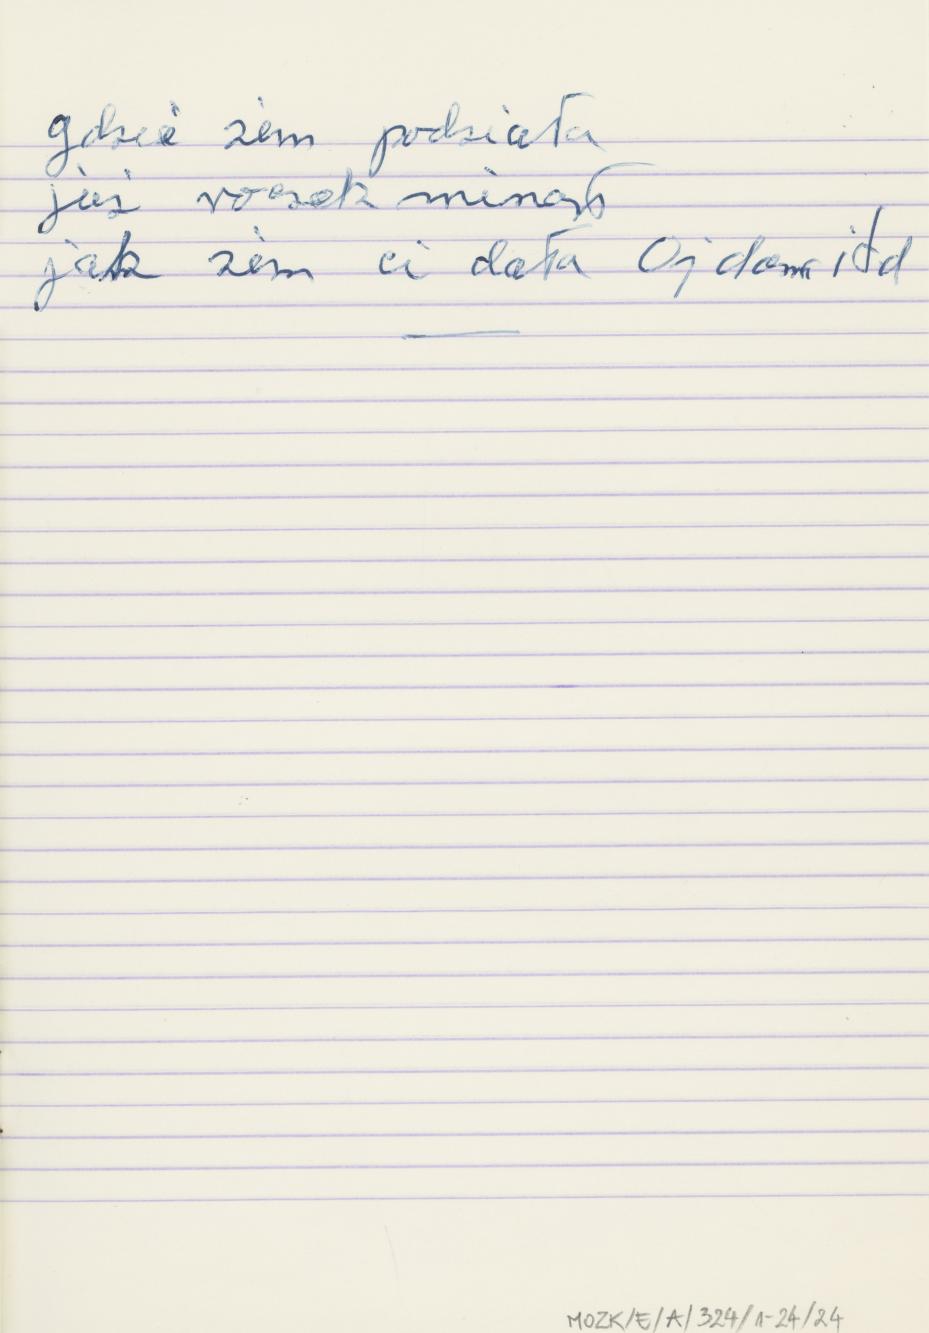 gdzie żem podziała
już roczek minął
jak żem ci dała Oj dana itd
MOZK/E/A/324/1-24/24